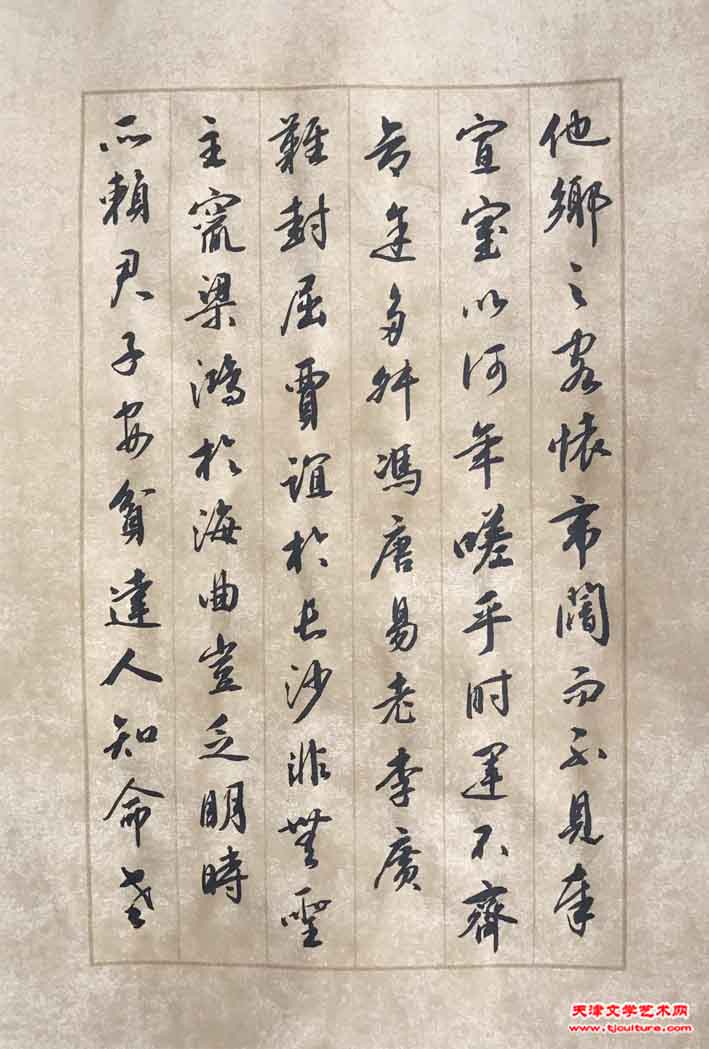 他鄉之客懷帝閽而不見奉
宣室以何年嗟乎时運不齊
命途多舛馮唐易老李廣
難封屈賈誼於長沙非無聖
主竄梁鴻於海曲豈乏明時
所賴君子安貧達人知命老
天津文学艺术网
www.tjculture.com